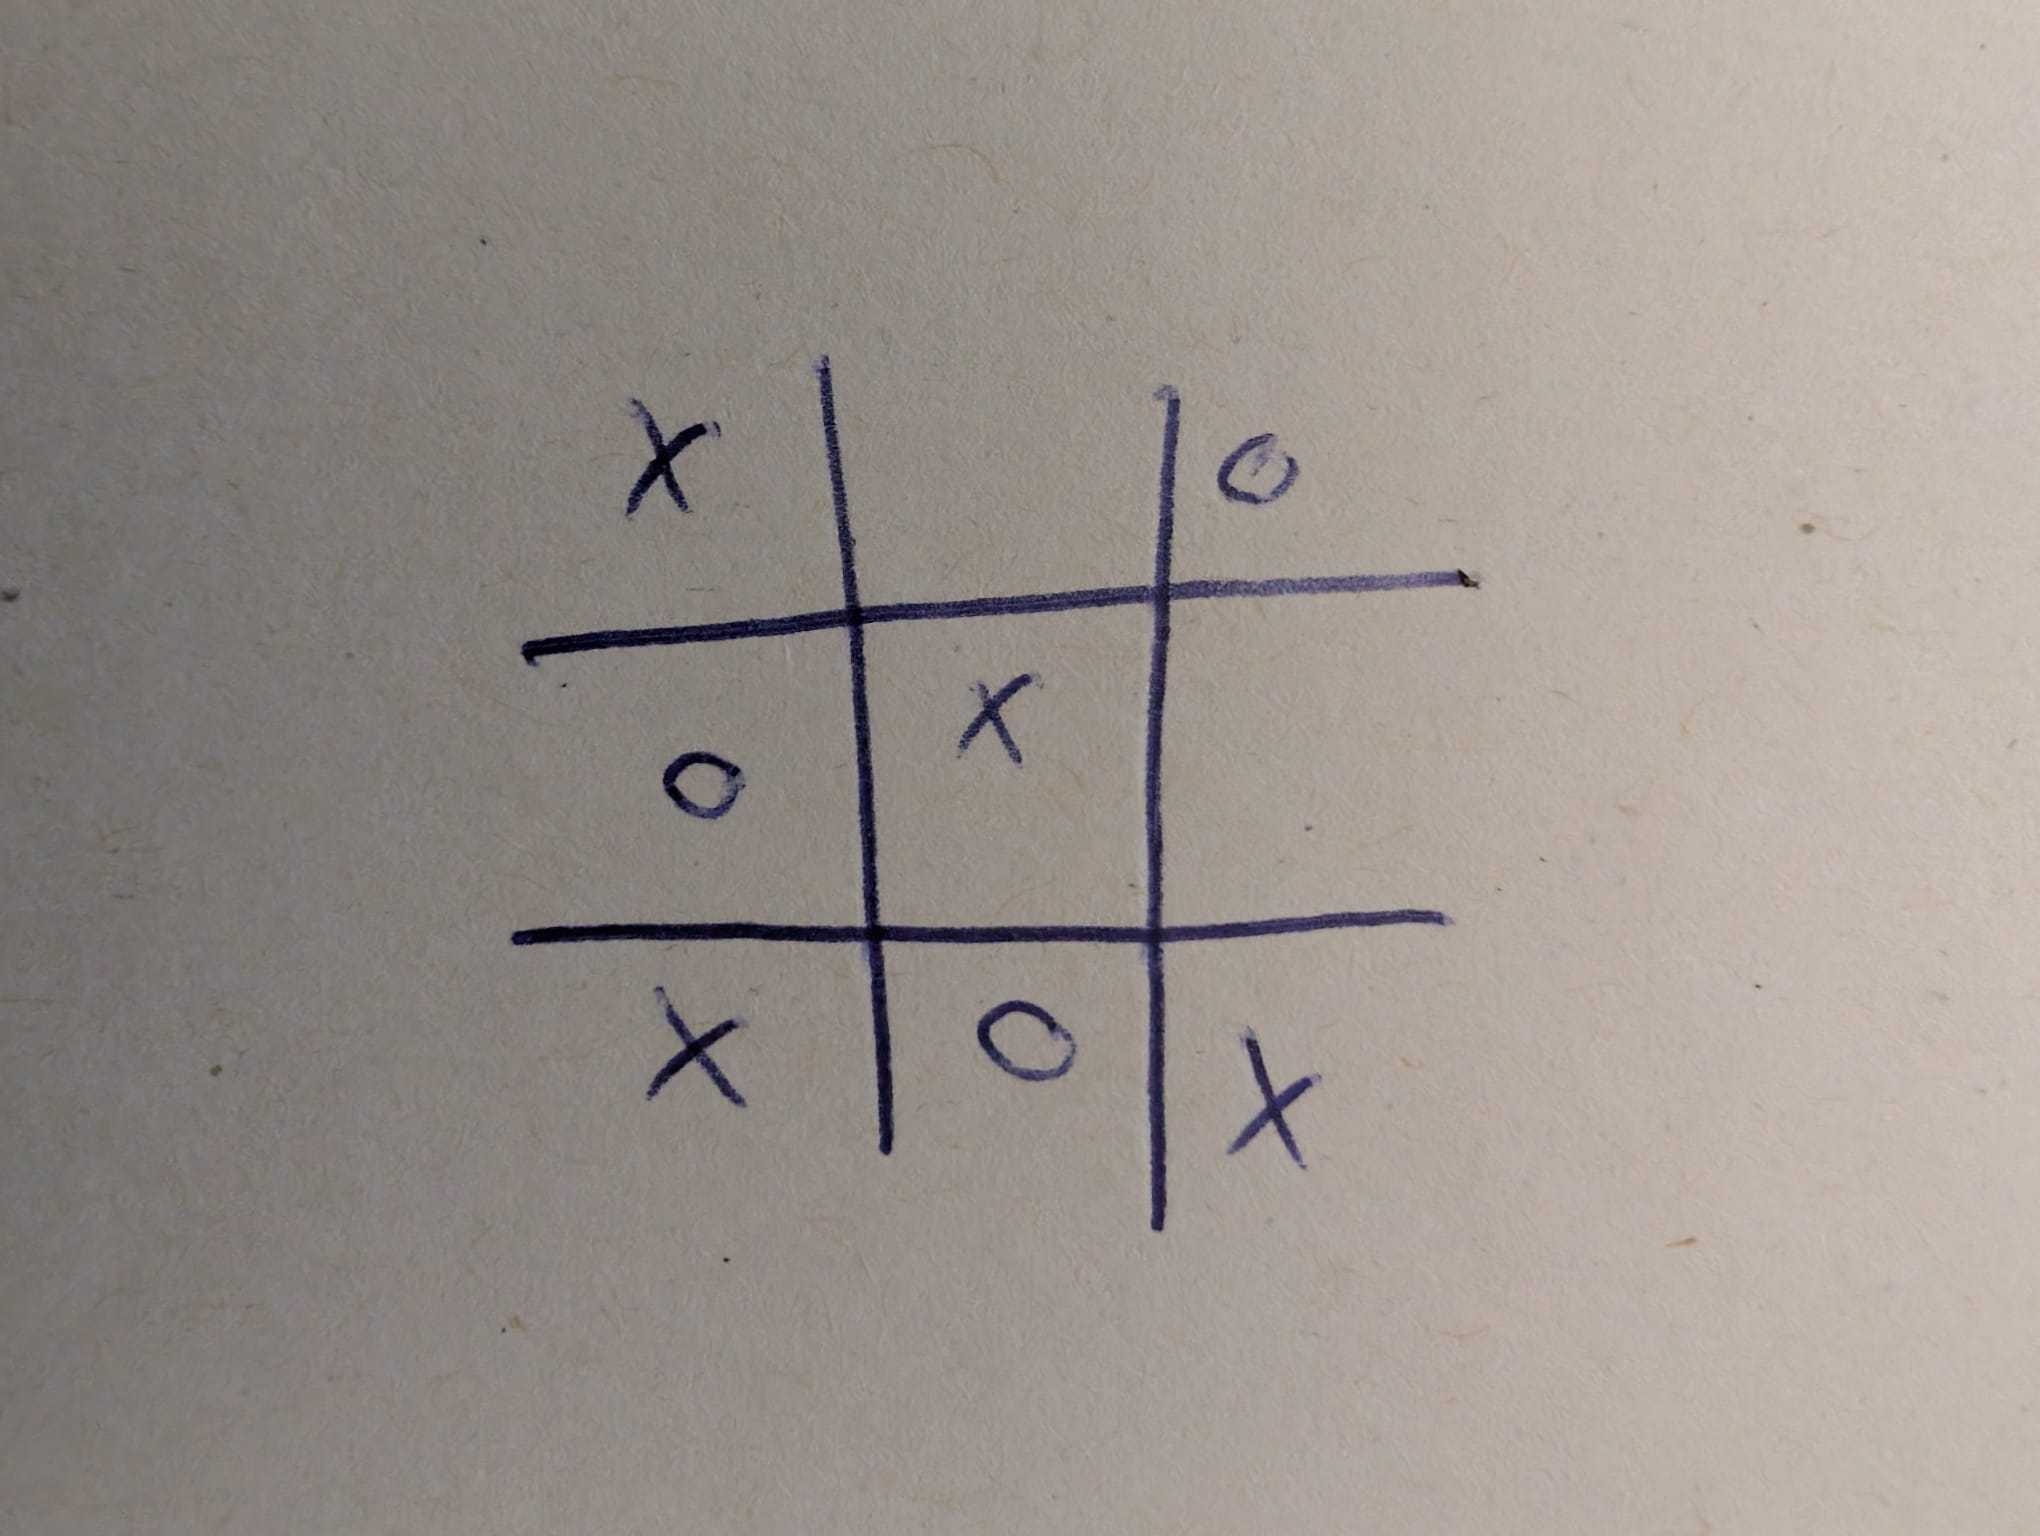 X O
O X
X O X